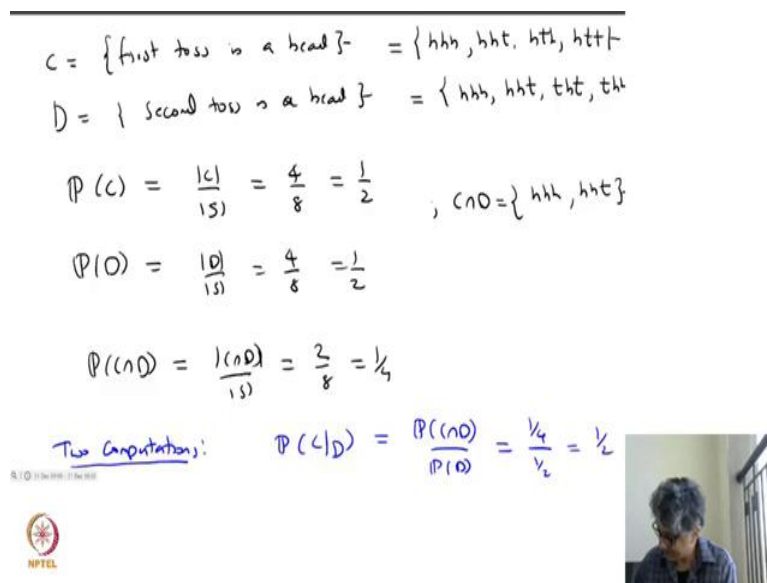 C = { first toss is a head } = { hhh, hht, hth, htt }
D = { Second toss is a head } = { hhh, hht, tht, thh
P(C) = |C| / |S| = 4/8 = 1/2 ; C∩D = { hhh, hht }
P(D) = |D| / |S| = 4/8 = 1/2
P(C∩D) = |C∩D| / |S| = 2/8 = 1/4
Two Computations: P(C|D) = P(C∩D) / P(D) = 1/4 / 1/2 = 1/2
NPTEL